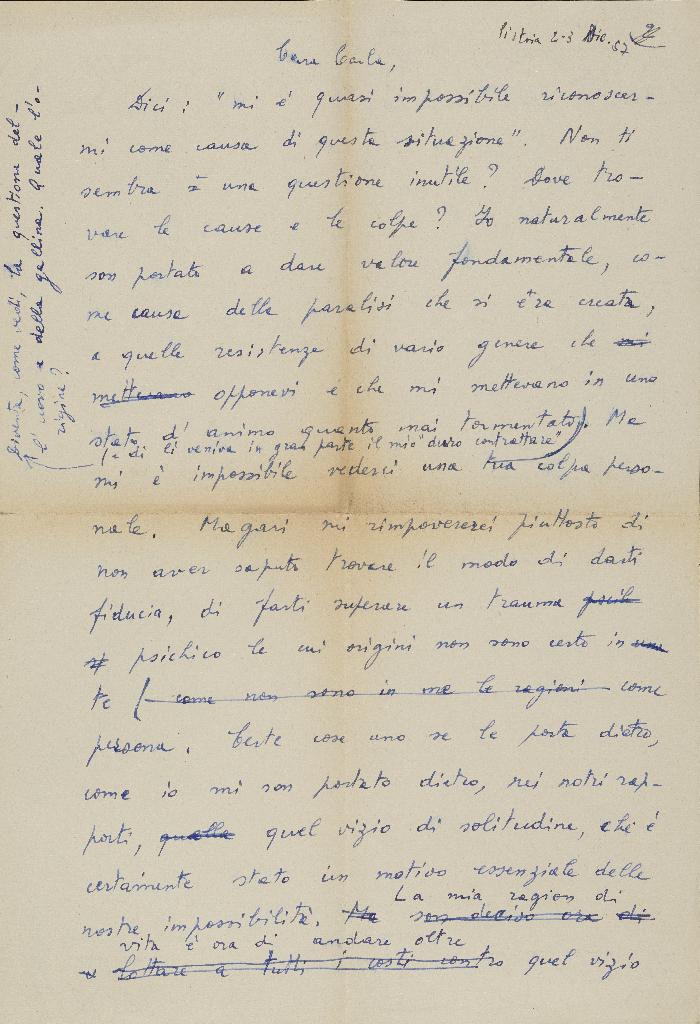 Pistoia 2-3 Dic. 57
Cara Carla,
Dici: "mi è quasi impossibile riconoscer-
mi come causa di questa situazione". Non ti
sembra è una questione inutile? Dove tro-
vare le cause e le colpe? Io naturalmente
son portato a dare valore fondamentale, co-
me causa della paralisi che si era creata,
a quelle resistenze di vario genere che mi
mettevano opponevi e che mi mettevano in uno
stato d'animo quanto mai tormentato. Ma
(e di lì veniva in gran parte il mio "duro contrattare")
mi è impossibile vederci una tua colpa perso-
nale. Magari mi rimprovererei piuttosto di
non aver saputo trovare il modo di darti
fiducia, di farti superare un trauma
psichico le cui origini non sono certo in
te (– come non sono in me le ragioni – come
persona. Certe cose uno se le porta dietro,
come io mi son portato dietro, nei notri rap-
porti, quella quel vizio di solitudine, che è
certamente stato un motivo essenziale delle
nostre impossibilità. Ma son deciso ora di
La mia ragion di
vita è ora di andare oltre
lottare a tutti i costi contro quel vizio
Diventa, come vedi, la questione del-
l'uovo e della gallina. Quale l'o-
rigine?